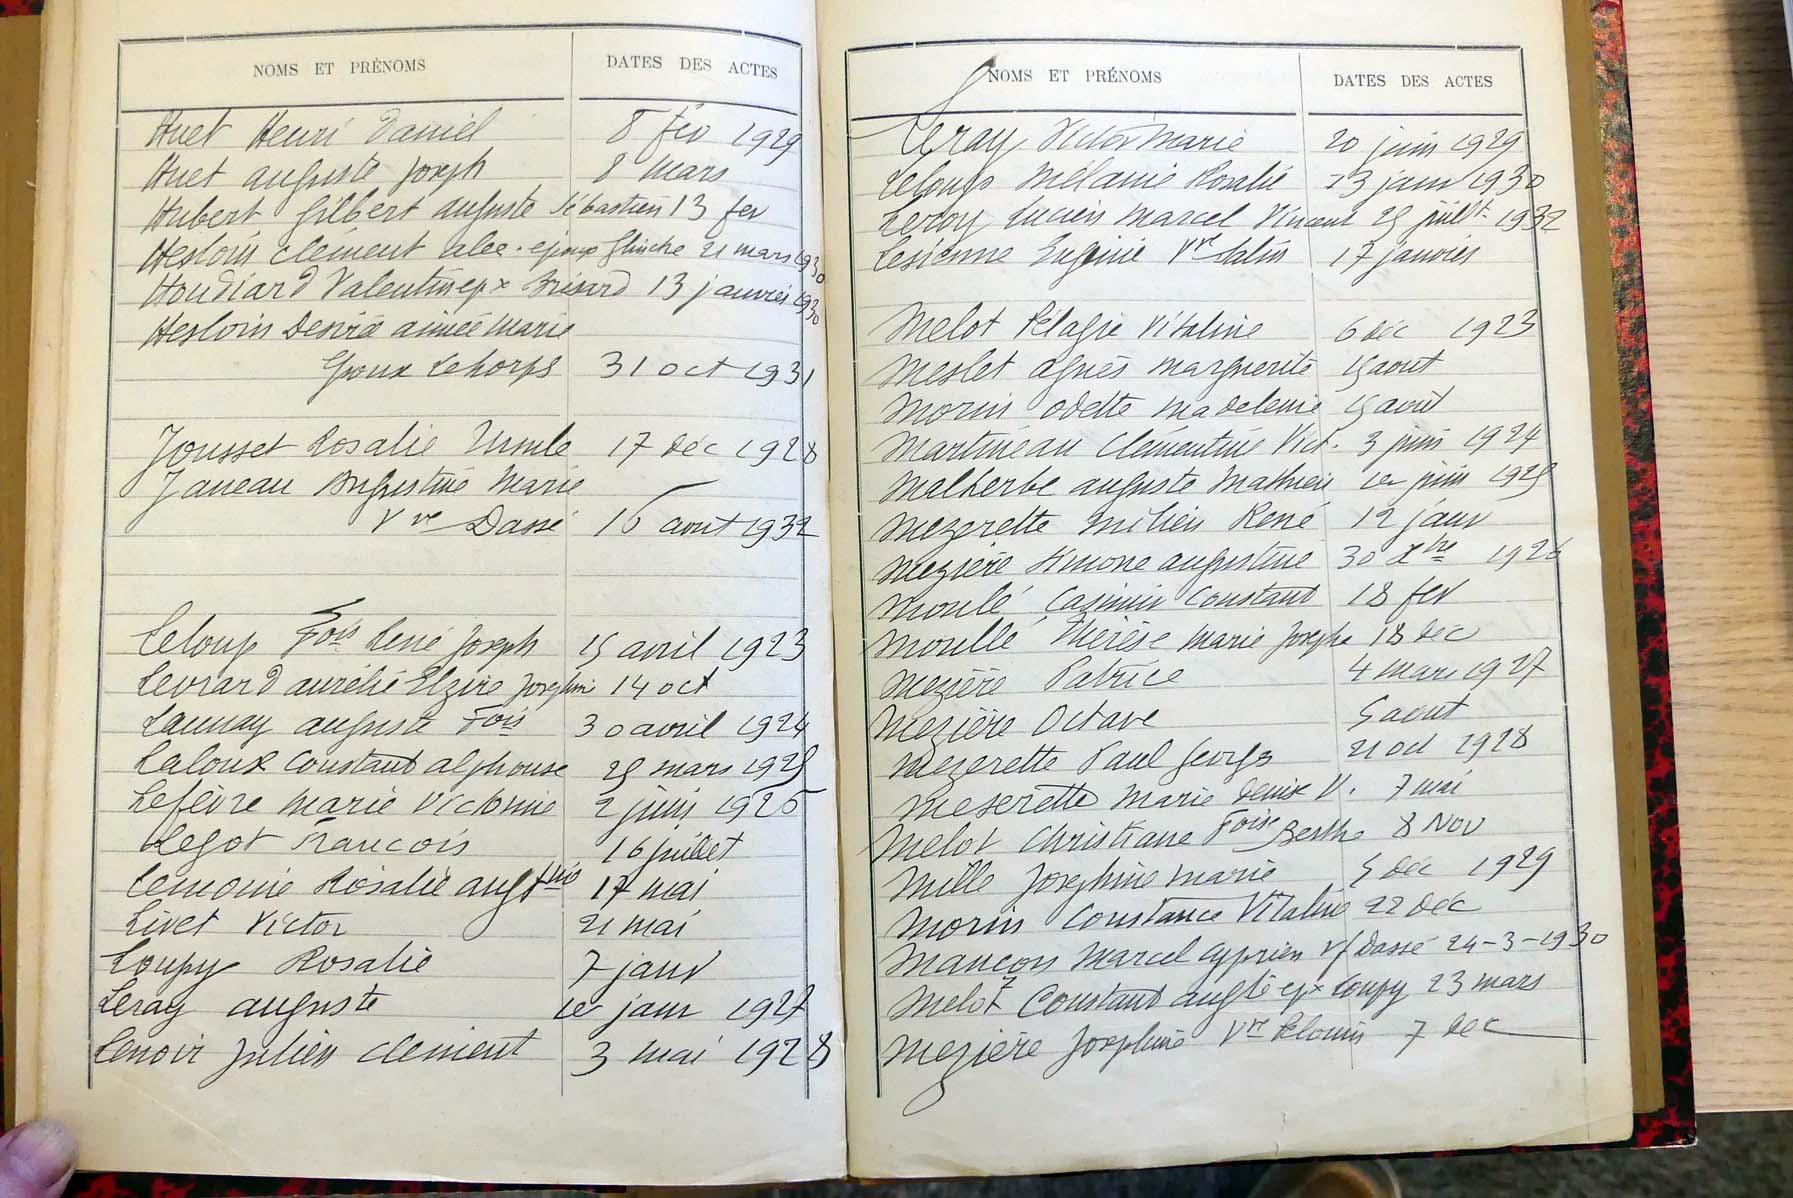 NOMS ET PRÉNOMS DATES DES ACTES
Huet Henri Daniel 8 fev 1929
Huet auguste Joseph 8 mars
Hubert Gilbert auguste Sébastien 13 fev
Hesloin clément alec. epoux 21 mars 1930
Houdiard Valentin epx Brisard 13 janvier 1930
Hesloin Desiré aimée Marie
Epoux Lehorps 31 oct 1931
Jousset Rosalie Ursule 17 Déc 1928
Janeau Augustine Marie
Vve Dassé 16 aout 1932
Leloup Fois René Joseph 15 avril 1923
Levrard aurélie Elzire Joséphine 14 oct
Launay auguste Fois 30 avril 1924
Laloux Constant alphonse 25 mars 1925
Lefèvre Marie Victorine 2 juin 1926
Legot François 16 juillet
Lemoine Rosalie augtine 17 mai
Livet Victor 21 mai
Loupy Rosalie 7 janv
Leray auguste 1er janv 1927
Lenoir Julien Clément 3 mai 1928
NOMS ET PRÉNOMS DATES DES ACTES
Leray Victor Marie 20 juin 1929
Leloup Mélanie Rosalie 23 janv 1930
Leroy Lucien Marcel Vincent 25 juillt 1932
Lesienne Eugénie Vve 17 janvier
Melot Pélagie Vitaline 6 déc 1923
Meslet Agnès Marguerite 15 aout
Morin Odette Madeleine 15 aout
Martineau Clémentine Vict. 3 juin 1924
Malherbe auguste Mathieu 1er juin 1925
Mezerette Emilien René 12 janv
Mezière Simone augustine 30 Xbre 1926
Moulé Casimir Constant 18 fev
Moullé Thérèse Marie Josèphe 18 Déc
Mezière Patrice 4 mars 1927
Mezière Octave 5 aout
Mezerette Paul Georges 21 oct 1928
Meserette Marie Denise V. 7 mai
Melot Christiane Foise Berthe 8 Nov
Mille Joséphine Marie 5 Déc 1929
Morin Constance Vitaline 22 déc
Mancois Marcel Cyprien vf Dassé 24-3-1930
Melot Constant augte epx Loupy 23 mars
Mezière Joséphine Vve 7 dec